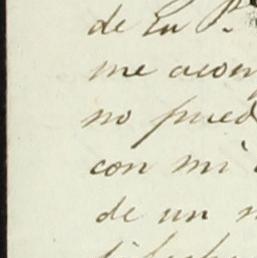 de Eu P.
me acom
no pued
con mi
de un